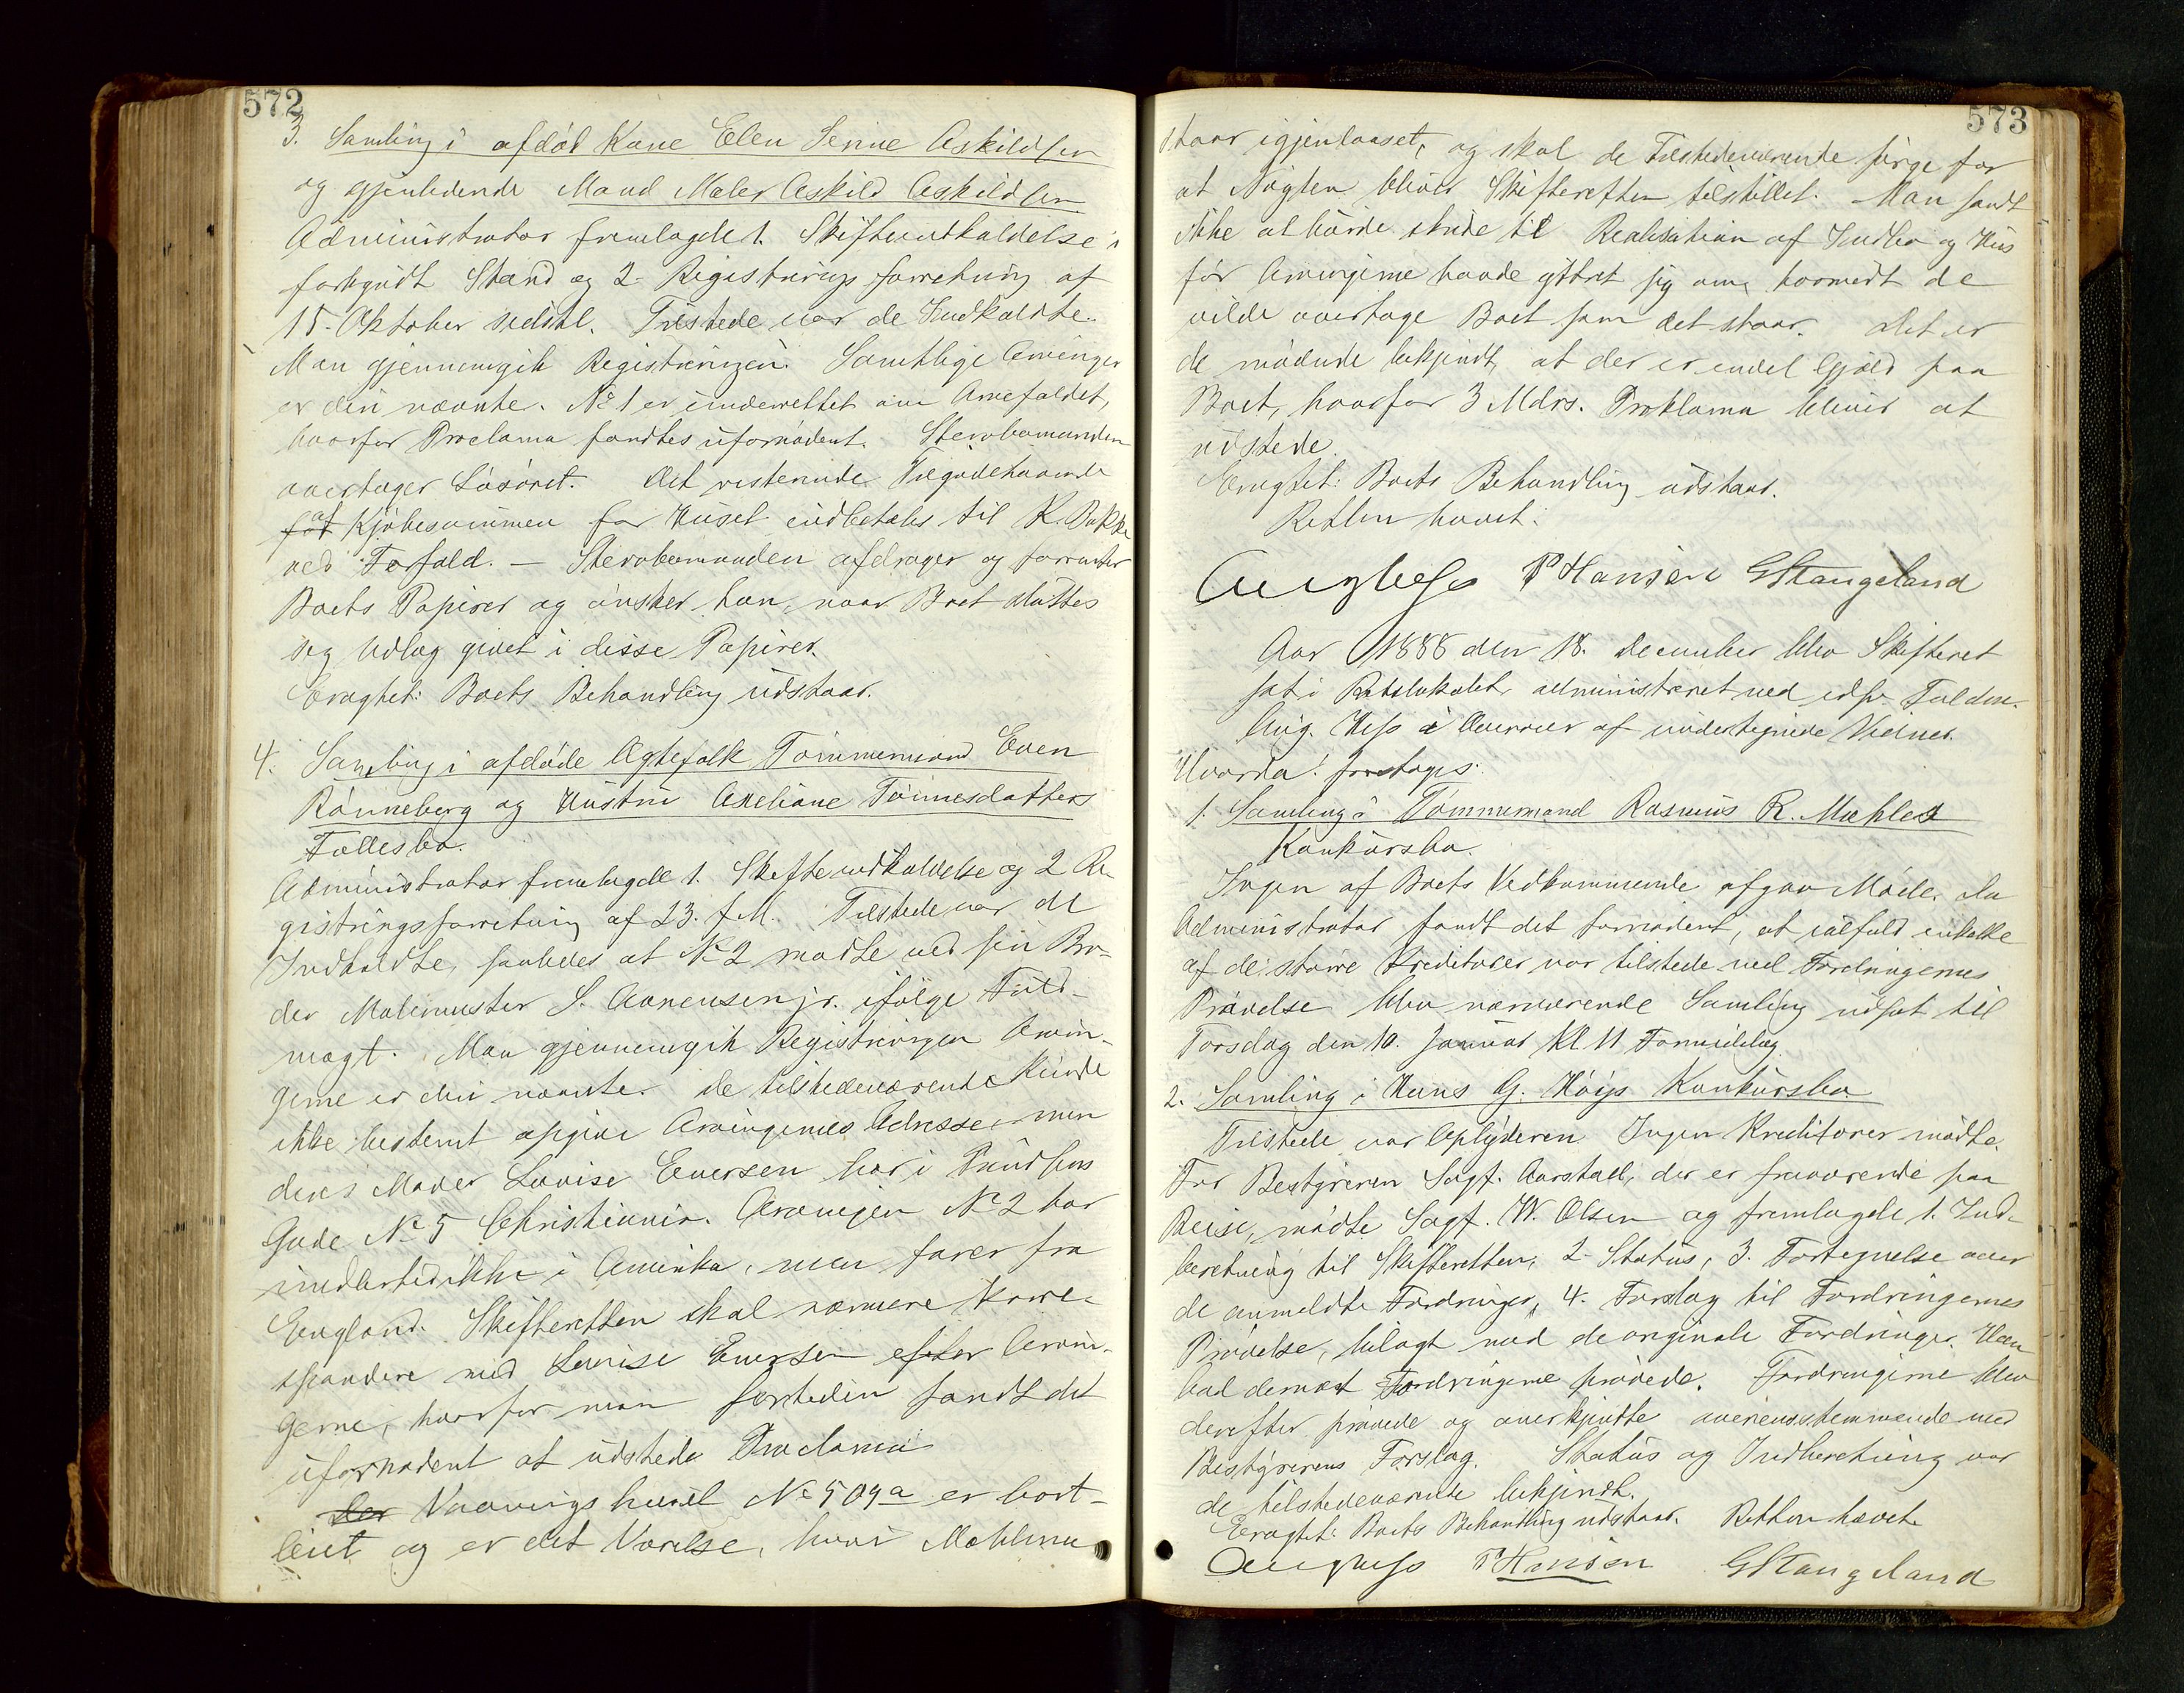 572
3. Samling i afdöd Kone Elen Serine Askildsen
og gjenlevende Mand Maler Askild Askildsen
Administrator fremlagde 1. Skifteindkaldelse i
forkyndt Stand og 2. Registrerings forretning af
15. Oktober sidstl. Tilstede var de Indkaldte.
Man gjennemgik Registreringen. Samtlige Arvinger
er deri nævnte. No 1 er underrettet om Arvefaldet,
hvorfor Proclama fandtes ufornödent. Stervbomanden
overtager Lösöret. Det resterende Tilgodehavende
af Kjöbesummen for Huset indbetales til K. Bakke
ved Forfald. — Stervbomanden afdrager og forrenter
Boets Papirer og önsker han, naar Boet sluttes
sig Udlæg givet i disse Papirer.
Eragtet: Boets Behandling udstaar.
4. Samling i afdöde Ægtefolk Tömmermand Even
Rönneberg og Hustru Axeliane Tönnesdatters
Fællesbo.
Administrator fremlagde 1. Skifteindkaldelse og 2 Re-
gistringsforretning af 23. f.M. Tilstede var de
Indkaldte, saaledes at No 2 mödte ved sin Bro-
der Malermester S. Aanensen jr. ifölge Fuld-
magt. Man gjennemgik Registreringen Arvin-
gerne er deri nævnte. De tilstedeværende kunde
ikke bestemt opgive Arvingernes Adresser men
deres Moder Lovise Eversen bor i Rund
Gade No 5 Christiania. Arvingen No 2 bor
imidlertid ikke i Amerika, men farer fra
England. Skifteretten skal nærmere korre-
spondere med Lovise Eversen efter Arvin-
gerne, hvorfor man forsteden fandt det
ufornödent at udstede Proclama
Der Vaaningshuset No 509a er bort-
leiet og er det Værelse, hvor Möblerne
573
staar igjenlaaset, og skal de Tilstedeværende sörge for
at Nöglen bliver Skifteretten tilstillet. Man fandt
ikke at burde skride til Realisation af Indbo og Hus
för Arvingerne havde yttret sig om, hvorvidt de
vilde overtage Boet som det staar. Det er
de mödende bekjendt, at der er endel Gjæld paa
Boet, hvorfor 3 Mdrs. Proklama bliver at
udstede.
Eragtet: Boets Behandling udstaar.
Retten hævet.
Aug Hess P Hansen G Stangeland
Aar 1888 den 18. December blev Skifteret
sat i Retslokalet administreret ved edsv. Fuldm.
Aug. Hess i Overvær af undertegnede Vidner.
Hvorda! foretoges:
1. Samling i Tömmermand Rasmus R. Mæhles
Konkursbo.
Ingen af Boets Vedkommende afgav Möde. Da
Administrator fandt det fornödent, at ialfald enkelte
af de större Kreditorer var tilstede ved Fordringernes
Prövelse blev nærværende Samling udsat til
Torsdag den 10. Januar Kl 11 Formiddag.
2. Samling i Hans G. Höigs Konkursbo
Tilstede var Oplyderen. Ingen Kreditorer mödte.
For Bestyreren Sagf. Aarstad, der er fraværende paa
Reise, mödte Sagf. W. Olsen og fremlagde 1. Ind-
beretning til Skifteretten, 2. Status, 3. Fortegnelse over
de anmeldte Fordringer, 4. Forslag til Fordringernes
Prövelse, bilagt med de originale Fordringer. Han
bad dernæst Fordringerne prövede. Fordringerne blev
derefter prövede og anerkjendte overensstemmende med
Bestyrerens Forslag. Status og Indberetning var
de tilstedeværende bekjendt.
Eragtet: Boets Behandling udstaar. Retten hævet.
Aug Hess P Hansen G Stangeland